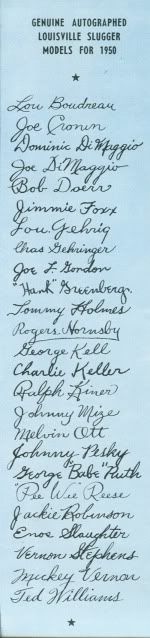 GENUINE AUTOGRAPHED
LOUISVILLE SLUGGER
MODELS FOR 1950
Lou Boudreau
Joe Cronin
Dominic DiMaggio
Joe DiMaggio
Bob Doerr
Jimmie Foxx
Lou Gehrig
Chas Gehringer
Joe L. Gordon
"Hank" Greenberg
Tommy Holmes
Rogers Hornsby
George Kell
Charlie Keller
Ralph Kiner
Johnny Mize
Melvin Ott
Johnny Pesky
George "Babe" Ruth
"Pee Wee" Reese
Jackie Robinson
Enos Slaughter
Vernon Stephens
Mickey Vernon
Ted Williams